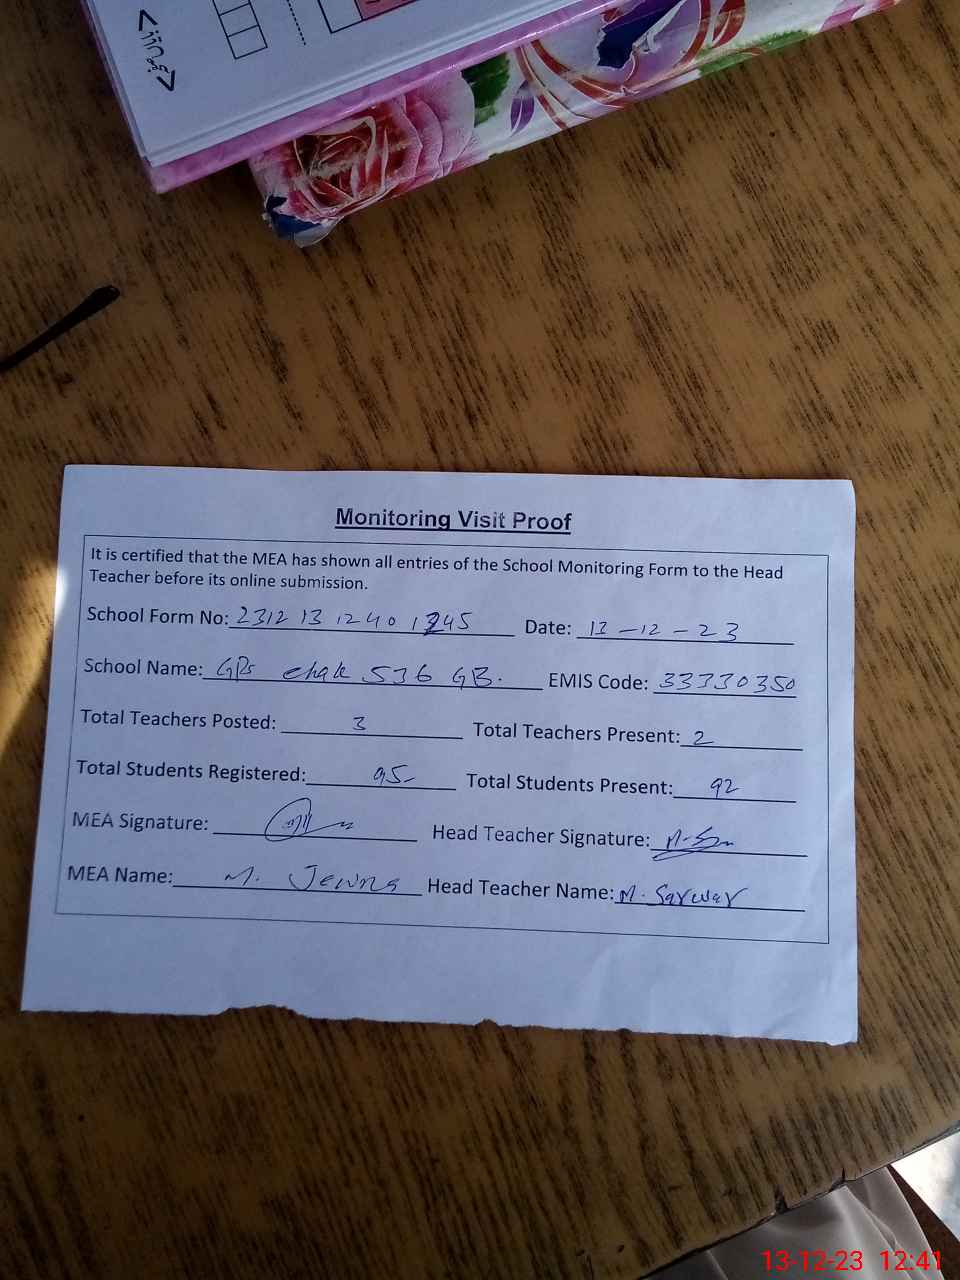 Monitoring Visit Proof
It is certified that the MEA has shown all entries of the School Monitoring Form to the Head
Teacher before its online submission.
School Form No: 2312 13 12401245 Date: 13-12-23
School Name: GPS chak 536 GB. EMIS Code: 33330350
Total Teachers Posted: 3 Total Teachers Present: 2
Total Students Registered: 95 Total Students Present: 92
MEA Signature: Head Teacher Signature:
MEA Name: M. Head Teacher Name: M. Sarwar
13-12-23 12:41